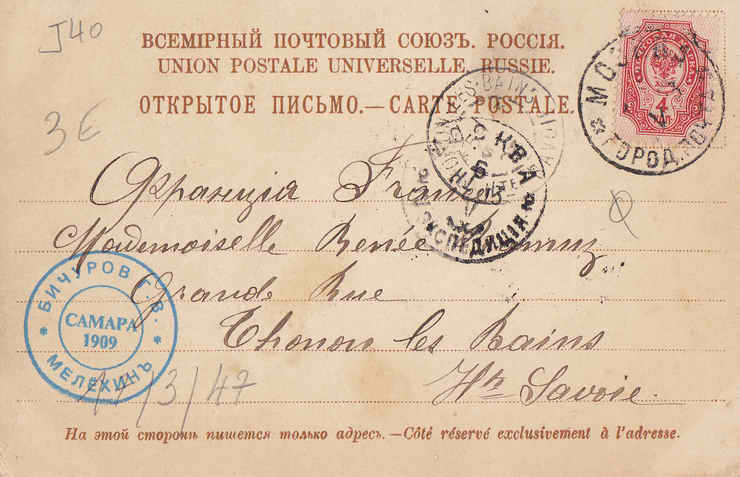 J40
ВСЕМІРНЫЙ ПОЧТОВЫЙ СОЮЗЪ. РОССІЯ.
UNION POSTALE UNIVERSELLE. RUSSIE.
ОТКРЫТОЕ ПИСЬМО.—CARTE POSTALE.
3E
4
ГОРОД. ПОЧТА
ЭКСПЕДИЦІЯ
Франція France
Mademoiselle Renée
Grande Rue
Thonon les Bains
Hte Savoie.
БИЧУРОВ Г. В.
САМАРА
1909
МЕЛЕХИНЪ
/3/47
На этой сторонѣ пишется только адресъ.—Côté réservé exclusivement à l'adresse.